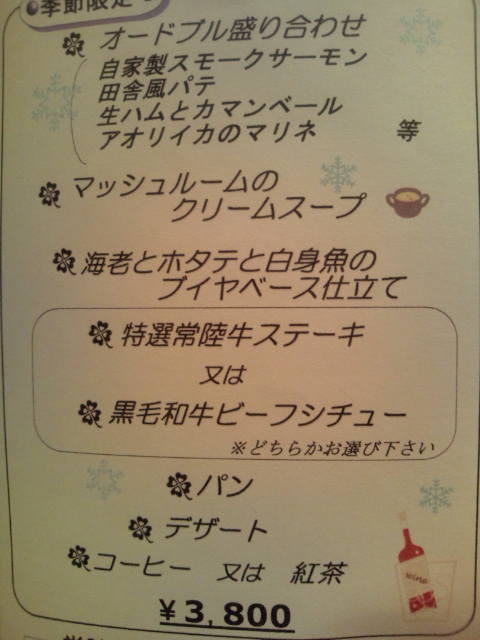 季節限定
オードブル盛り合わせ
自家製スモークサーモン
田舎風パテ
生ハムとカマンベール
アオリイカのマリネ 等
マッシュルームの
クリームスープ
海老とホタテと白身魚の
ブイヤベース仕立て
特選常陸牛ステーキ
又は
黒毛和牛ビーフシチュー
※どちらかお選び下さい
パン
デザート
コーヒー 又は 紅茶
¥3,800